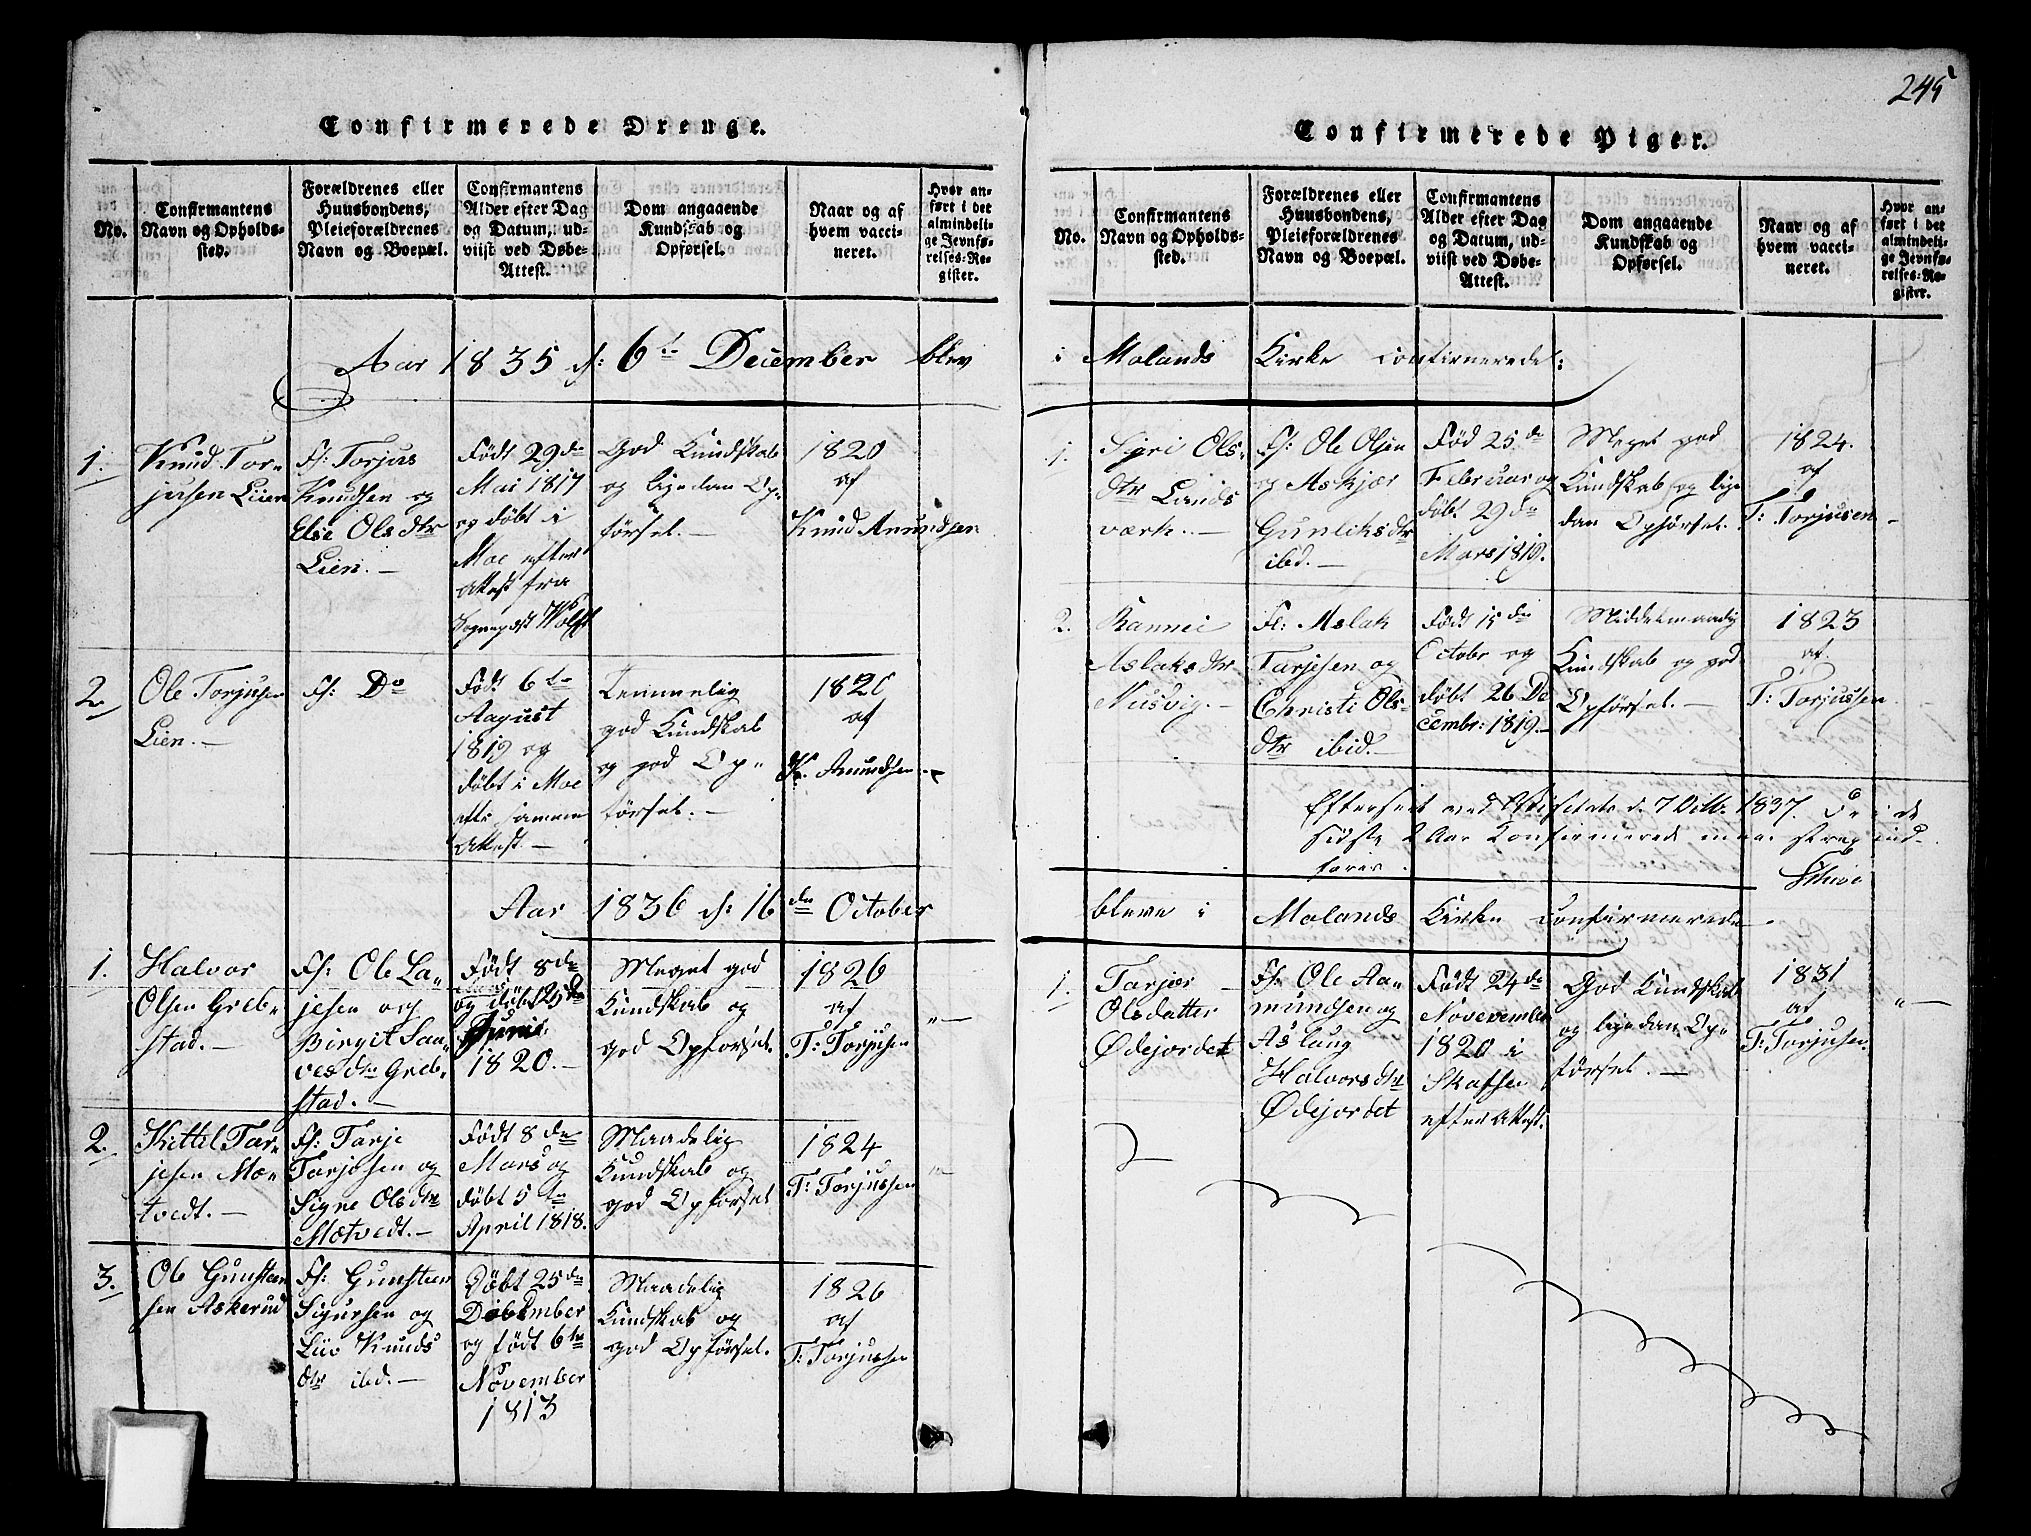 245
Confirmerede Drenge.
No.
Confirmantens
Navn og Opholds-
sted.
Forældrenes eller
Huusbondens,
Pleieforældrenes
Navn og Boepæl.
Confirmantens
Alder efter Dag
og Datum, ud-
viist ved Døbe-
Attest.
Dom angaaende
Kundskab og
Opførsel.
Naar og af
hvem vacci-
neret.
Hvor an-
ført i det
almindeli-
ge Jevnfø-
relses-Re-
gister.
Aar 1835 d: 6te December blev
1.
Knud Tor-
jusen Lien
F: Torjus
Knudsen og
Else Olsdtr
Lien. –
Født 29de
Mai 1817
og døbt i
Moe efter
Attest fra
Sognepræst Wolff
God Kundskab
og ligedan Op-
førsel. –
1820
af
Knud Anundsen
2.
Ole Torjusen
Lien. –
F: Do
Født 6te
August
1819 og
døbt i Moe
efter samme
Attest. –
Temmelig
god Kundskab
og god Op-
førsel. –
1820
af
K. Anundsen. –
Aar 1836 d: 16de October
1.
Halvor
Olsen Greb-
stad. –
F: Ole La-
jesen og
Birgit Sau-
vesdtr Greb-
stad. –
Født 8de
og døbt 25de
Junii
1820. –
Meget god
Kundskab og
god Opførsel.
1826
af
T: Torjusen
" –
2.
Kittil Tar-
jesen Mæ-
tvedt. –
F: Tarje
Tarjesen og
Signe Olsdtr
Mætvedt. –
Født 8de
Mars og
døbt 5te
April 1818.
Maadelig
Kundskab og
god Opførsel
1824
T: Torjussen
" –
3.
Ole Gunsteen
sen Askerud
F: Gunsteen
Sigursen og
Liv Knuds
dtr ibd. –
Døbt 25de
December
og født 6te
November
1813
Maadelig
Kundskab og
god Opførsel.
1826
af
T: Torjussen
Confirmerede Piger.
No.
Confirmantens
Navn og Opholds-
sted.
Forældrenes eller
Huusbondens,
Pleieforældrenes
Navn og Boepæl.
Confirmantens
Alder efter Dag
og Datum, ud-
viist ved Døbe-
Attest.
Dom angaaende
Kundskab og
Opførsel.
Naar og af
hvem vacci-
neret.
Hvor an-
ført i det
almindeli-
ge Jevnfø-
relses-Re-
gister.
i Molands Kirke confirmerede:
1.
Siri Ols-
dtr Lands
værk. –
F: Ole Olsen
og Askjær
Gunliksdtr
ibd. –
Fød 25de
Februar og
døbt 29de
Mars 1819.
Meget god
Kundskab og lige
dan Opførsel.
1824.
af
T: Torjusen –
2.
Rannei
Aslaksdtr
Nusvig. –
F: Aslak
Tarjesen og
Christi Ols-
dtr ibid. –
Født 15de
Octobr og
døbt 26 De
cembr: 1819. –
Middelmaadig
Kundskab og god
Opførsel. –
1823
af.
T: Torjussen
Efterseet ved Visitats d. 7 Octbr. 1837. De i de
sidste 2 Aar Konfirmerede maae strax ind-
føres.
bleve i Molands Kirke Confirmerede.
1.
Tarjer
Olsdatter
Ødejordet
F: Ole Aa-
mundsen og
Aslaug
Halvorsdtr
Ødejordet
Født 24de
Novevember
1820 i
Skafsen
efter Attest.
God Kundskab
og ligedan Op-
førsel. –
1831
af
T: Torjusen.
" –